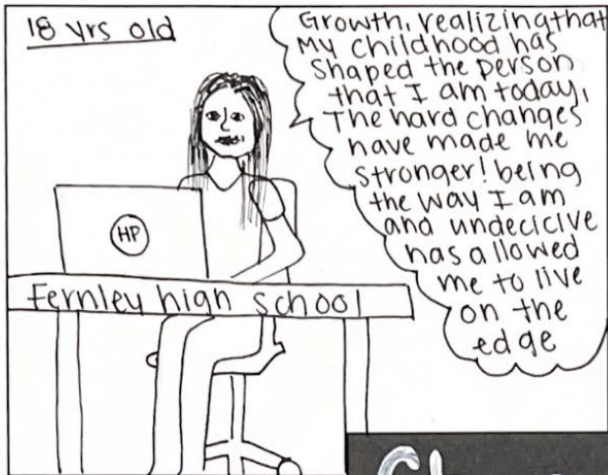 18 yrs old
Growth, realizing that
My childhood has
Shaped the person
that I am today,
The hard changes
have made me
stronger! being
the way I am
and undecicive
has allowed
me to live
on the
edge
HP
Fernley high school